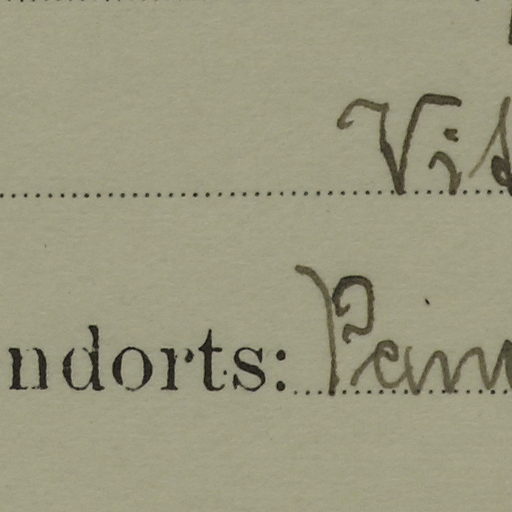 Vis
ndorts: Pein